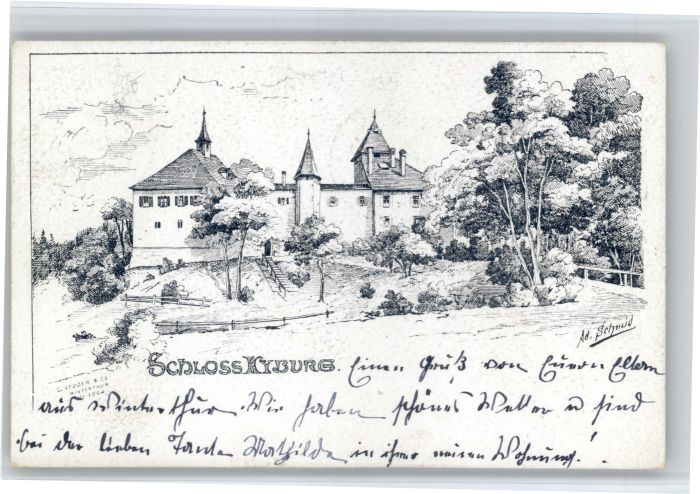 Ad. Schmid
SCHLOSS KYBURG. Einen Gruß von Euern Eltern
C. STUDER & CO
WINTERTHUR
aus Winterthur. Wir haben schönes Wetter u sind
bei der lieben Tante Mathilde in ihrer neuen Wohnung!